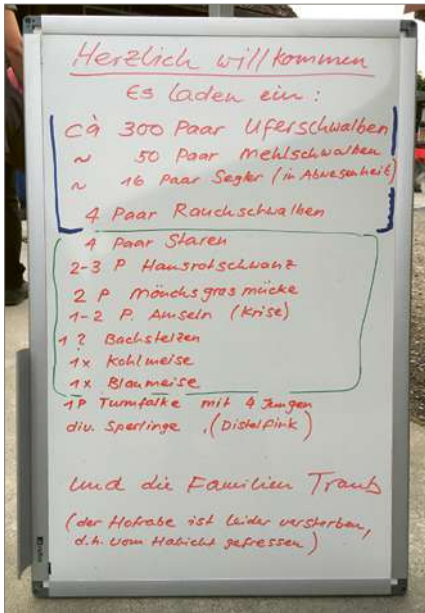 Herzlich willkommen
Es laden ein:
cà 300 Paar Uferschwalben
~ 50 Paar Mehlschwalben
~ 16 Paar Segler (in Abwesenheit)
4 Paar Rauchschwalben
4 Paar Staren
2-3 P Hausrotschwanz
2 P. Mönchsgrasmücke
1-2 P. Amseln (Krise)
1 ? Bachstelzen
1x Kohlmeise
1x Blaumeise
1P Turmfalke mit 4 Jungen
div. Sperlinge, (Distelfink)
und die Familien Traub
(der Hofrabe ist leider verstorben,
d.h. vom Habicht gefressen)